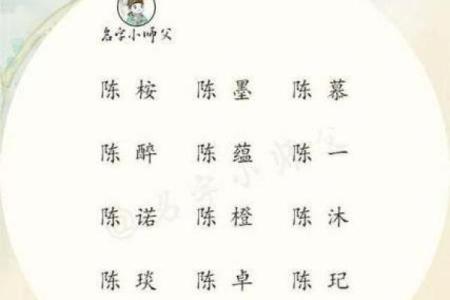 名字小师父
陈桉 陈墨 陈慕
陈醉 陈蕴 陈一
陈诺 陈橙 陈沐
陈琰 陈卓 陈玘
@名字小师父